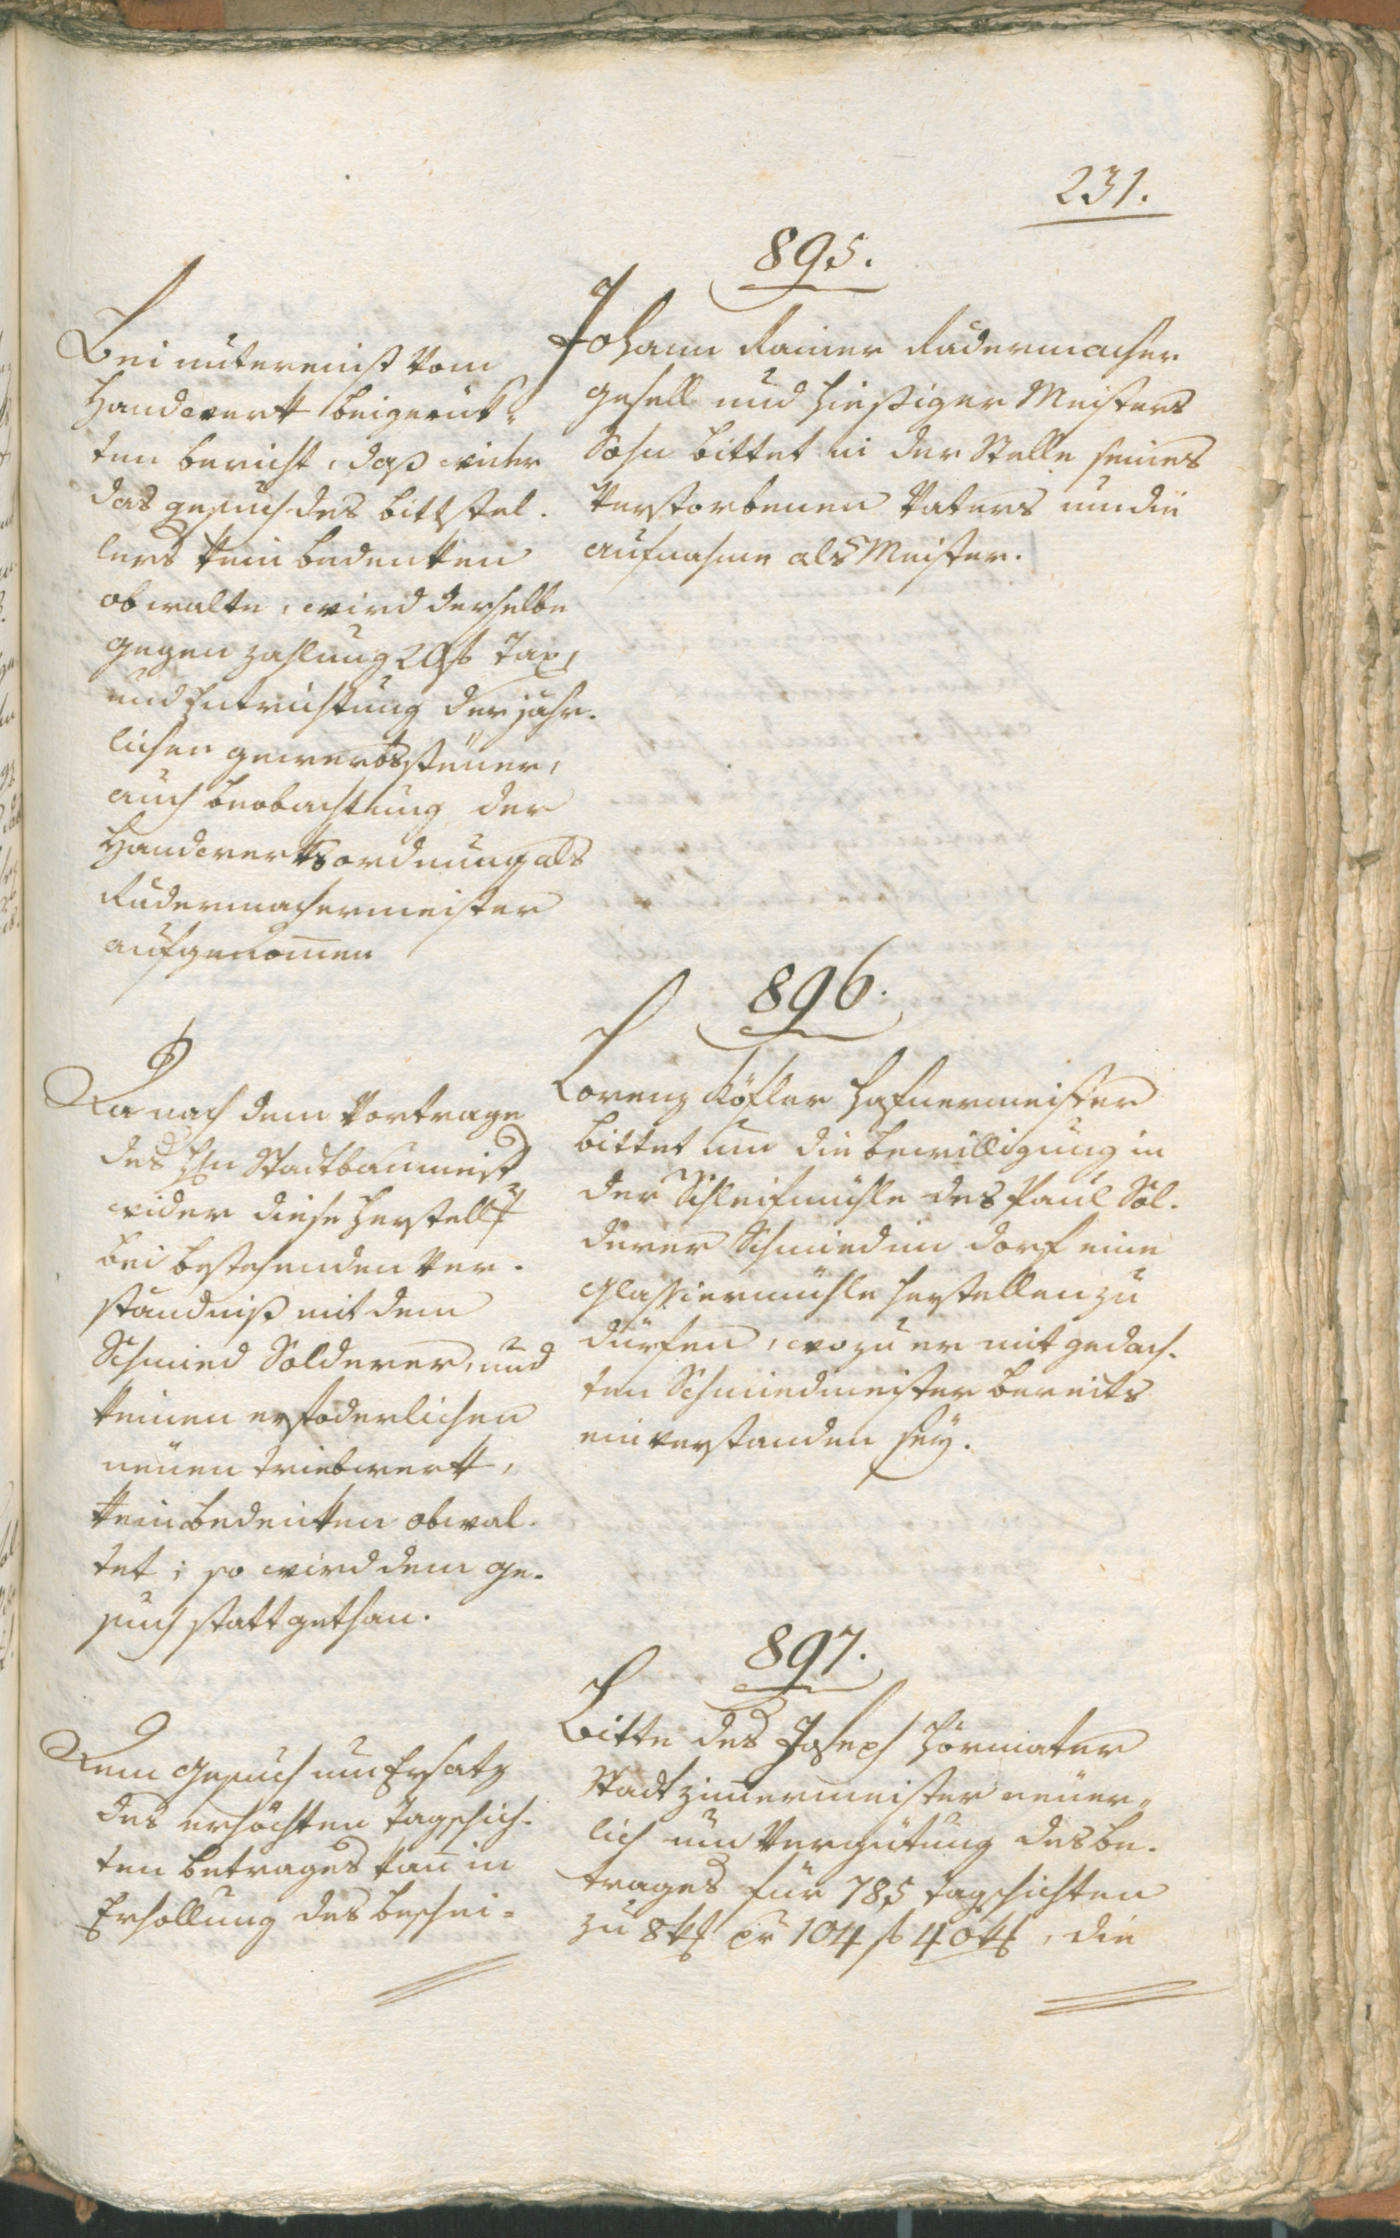 231.
895.
Johann Rainer Rädermacher
gesell und hiesiger Meisters
Sohn bittet in der Stelle seines
Verstorbenen Vaters um die
aufnahme als Meister.
Bei unterm vom
Handwerk beigerük¬
ten bericht, daß wider
das gesuch des bittstel-
lers kein bedenken
obwalte, wird derselbe
gegen zahlung 20 f Tax,
und Entrichtung der jähr-
lichen gewerbssteüer,
auch beobachtung der
Handwerksordnung als
Rädermachermeister
aufgenom̄en
896.
Lorenz Köfler Hafnermeister
bittet um die bewilligung in
der Schleifmühle des Paul Sol-
derer Schmied im dorf eine
Glassiermühle herstellen zu
dürfen, wozu er mit gedach-
ten Schmiedmeister bereits
einverstanden seÿ.
Da nach dem Vortrage
des Hn Stadtbaumeist
wider diese Herstellg
bei bestehenden Ver-
ständniß mit dem
Schmied Solderer, und
keinen erfoderlichen
neüen triebwerk,
kein bedenken obwal-
tet; so wird dem ge-
such statt gethan.
897.
Bitte des Joseph Hörmater
Stadtzim̄ermeister neüer¬
lich um Vergütung des be-
trages für 785 tagschichten
zu 8 kr pr 104 f 40 kr, die
Dem Gesuch um Ersatz
des erhöchten Tagschich-
ten betrages kan̄ in
Erhollung des beschei-